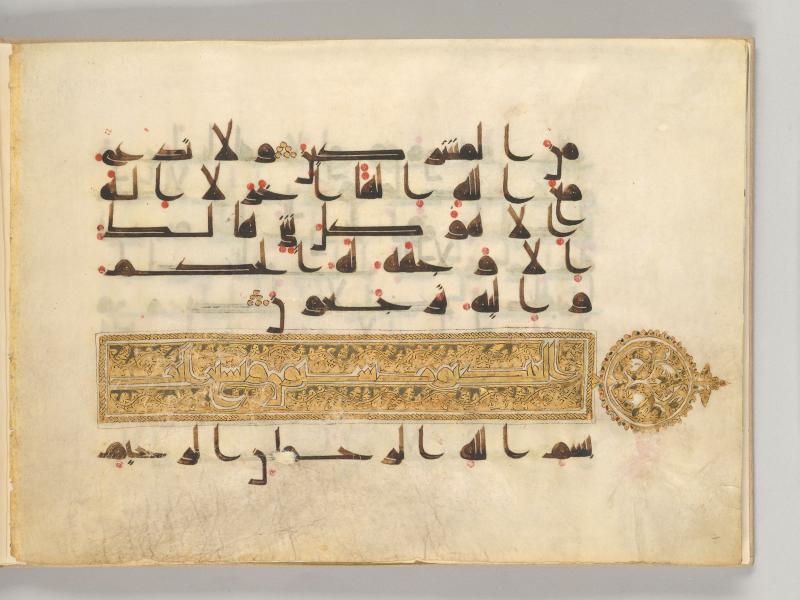 من المشركين ولا تدع
مع الله الها اخر لا اله
الا هو كل شى هالك
الا وجهه له الحكم
واليه ترجعون
العنكبوت وستون
بسم الله الرحمن الرحيم